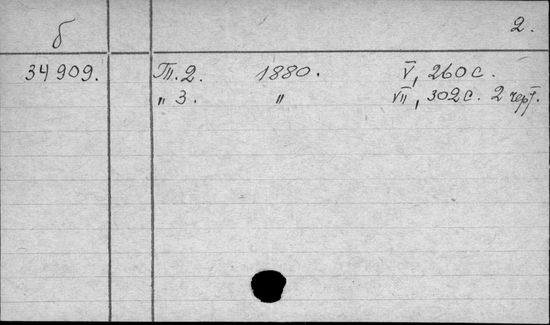 б 2.
34909. Т. 2. 1880. V, 260 с.
" 3. " VII, 302 с. 2 черт.